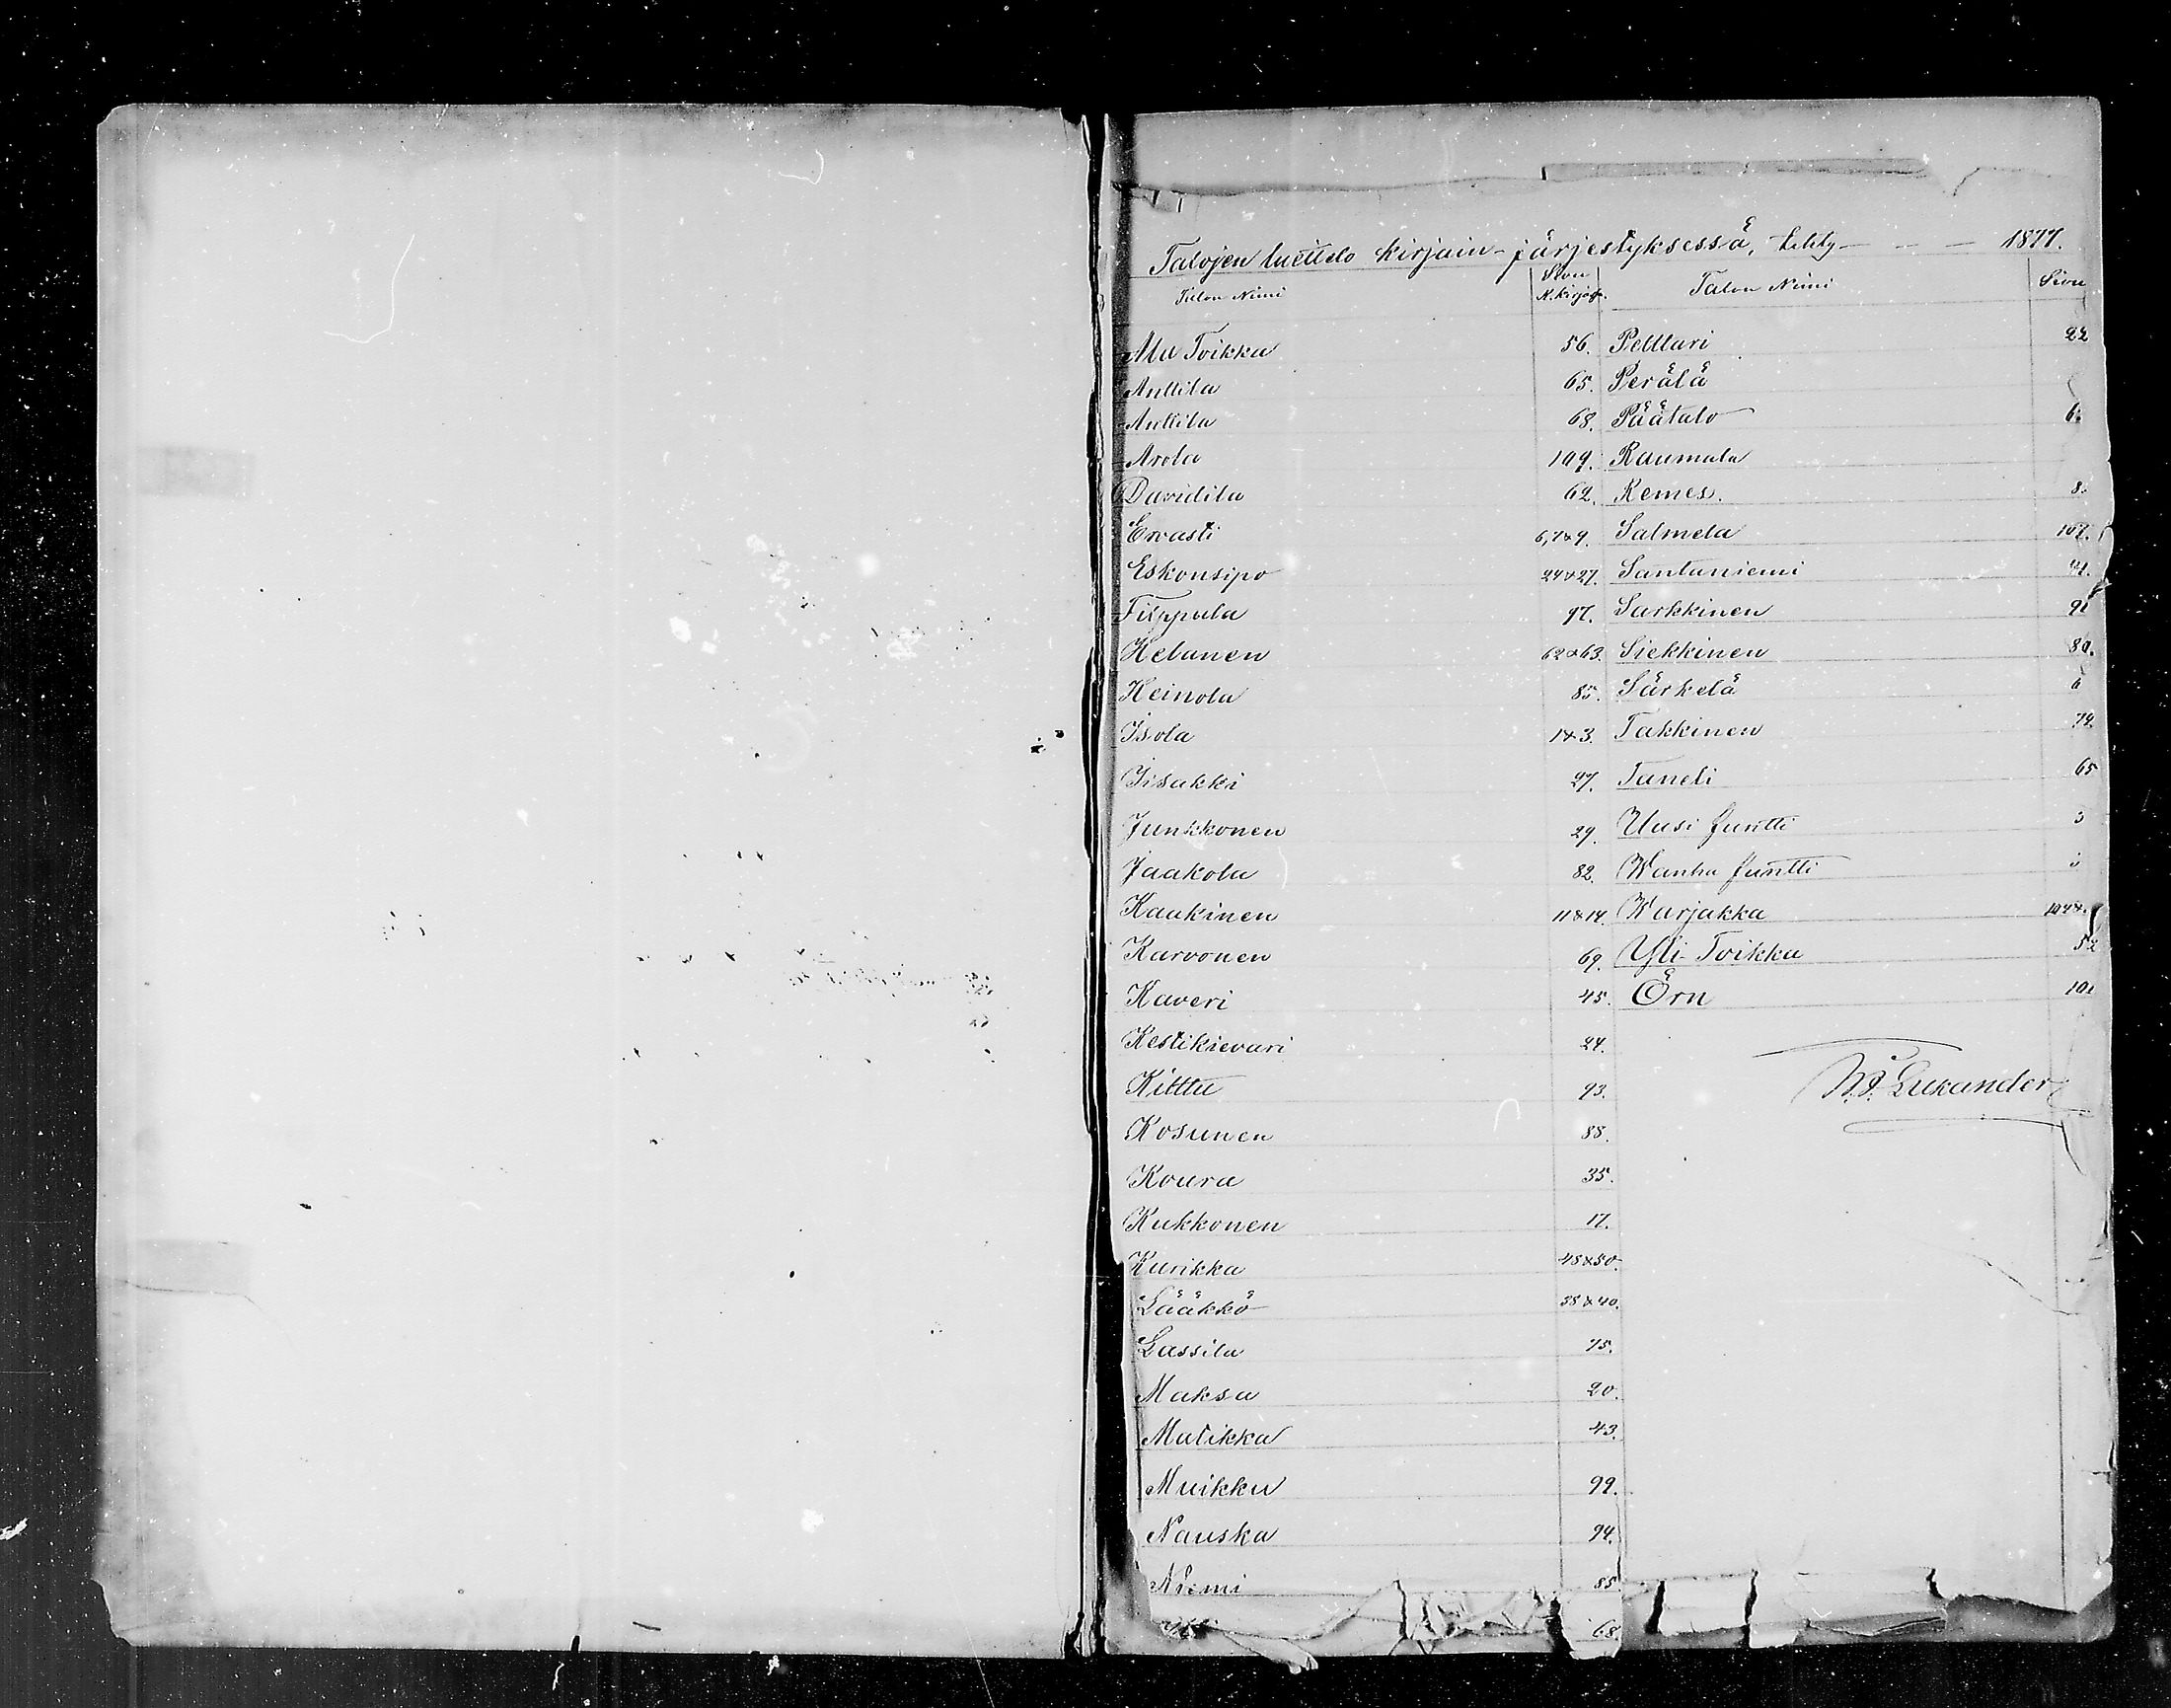 Talojen luettelo kirjain-järjestyksessä, tehty — — — 1877.
Talon Nimi Sivu K.kirjas. Talon Nimi Sivu
Ala Toikka 56. Pelttari 22
Anttila 65. Perälä
Anttila 68. Päätalo 6
Arola 109. Raumala
Davidila 62. Remes. 8
Ervasti 6,7&9. Salmela 107.
Eskonsipo 24&27. Santaniemi
Filppula 97. Sarkkinen 91
Helanen 62&63. Siekkinen 80.
Heinola 85. Särkelä 6
Isola 1&3. Takkinen 72
Iisakki 27. Taneli 65
Junkkonen 29. Uusi funtti 3
Jaakola 82. Wanha funtti
Kaakinen 11&14. Warjakka 104&
Karvonen 69. Yli-Toikka 52
Kaveri 45. Örn 101
Kestikievari 24.
Kittu 93. Lukander
Kosunen 88.
Koura 35.
Kukkonen 17.
Kurikka 48&50.
Lääkkö 38&40.
Lassila 75.
Maksa 20.
Matikka 43.
Muikku 99.
Nauska 94.
Niemi 85
68